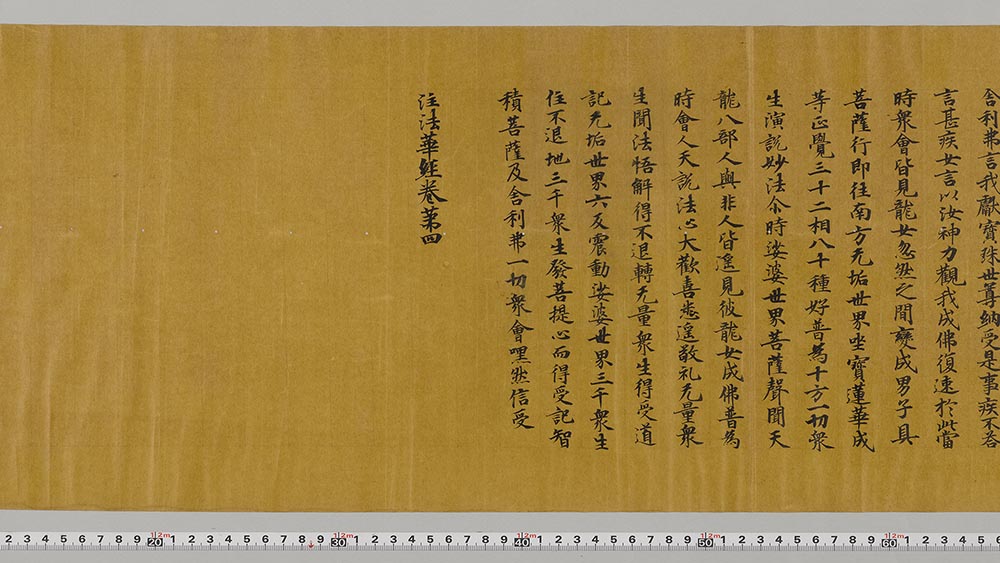 舎利弗言我獻寶珠世尊納受是事疾不答
言甚疾女言以汝神力觀我成佛復速於此當
時衆會皆見龍女忽然之間變成男子具
菩薩行即往南方无垢世界坐寶蓮華成
等正覺三十二相八十種好普為十方一切衆
生演說妙法尒時娑婆世界菩薩聲聞天
龍八部人與非人皆遙見彼龍女成佛普為
時會人天說法心大歡喜悉遙敬礼无量衆
生聞法悟解得不退轉无量衆生得受道
記无垢世界六反震動娑婆世界三千衆生
住不退地三千衆生發菩提心而得受記智
積菩薩及舍利弗一切衆會嘿然信受
注法華經卷第四
2 3 4 5 6 7 8 9 20 1 2 3 4 5 6 7 8 9 30 1 2 3 4 5 6 7 8 9 40 1 2 3 4 5 6 7 8 9 50 1 2 3 4 5 6 7 8 9 60 1 2 3 4 5 6
1|2m 1|2m 1|2m 1|2m 1|2m